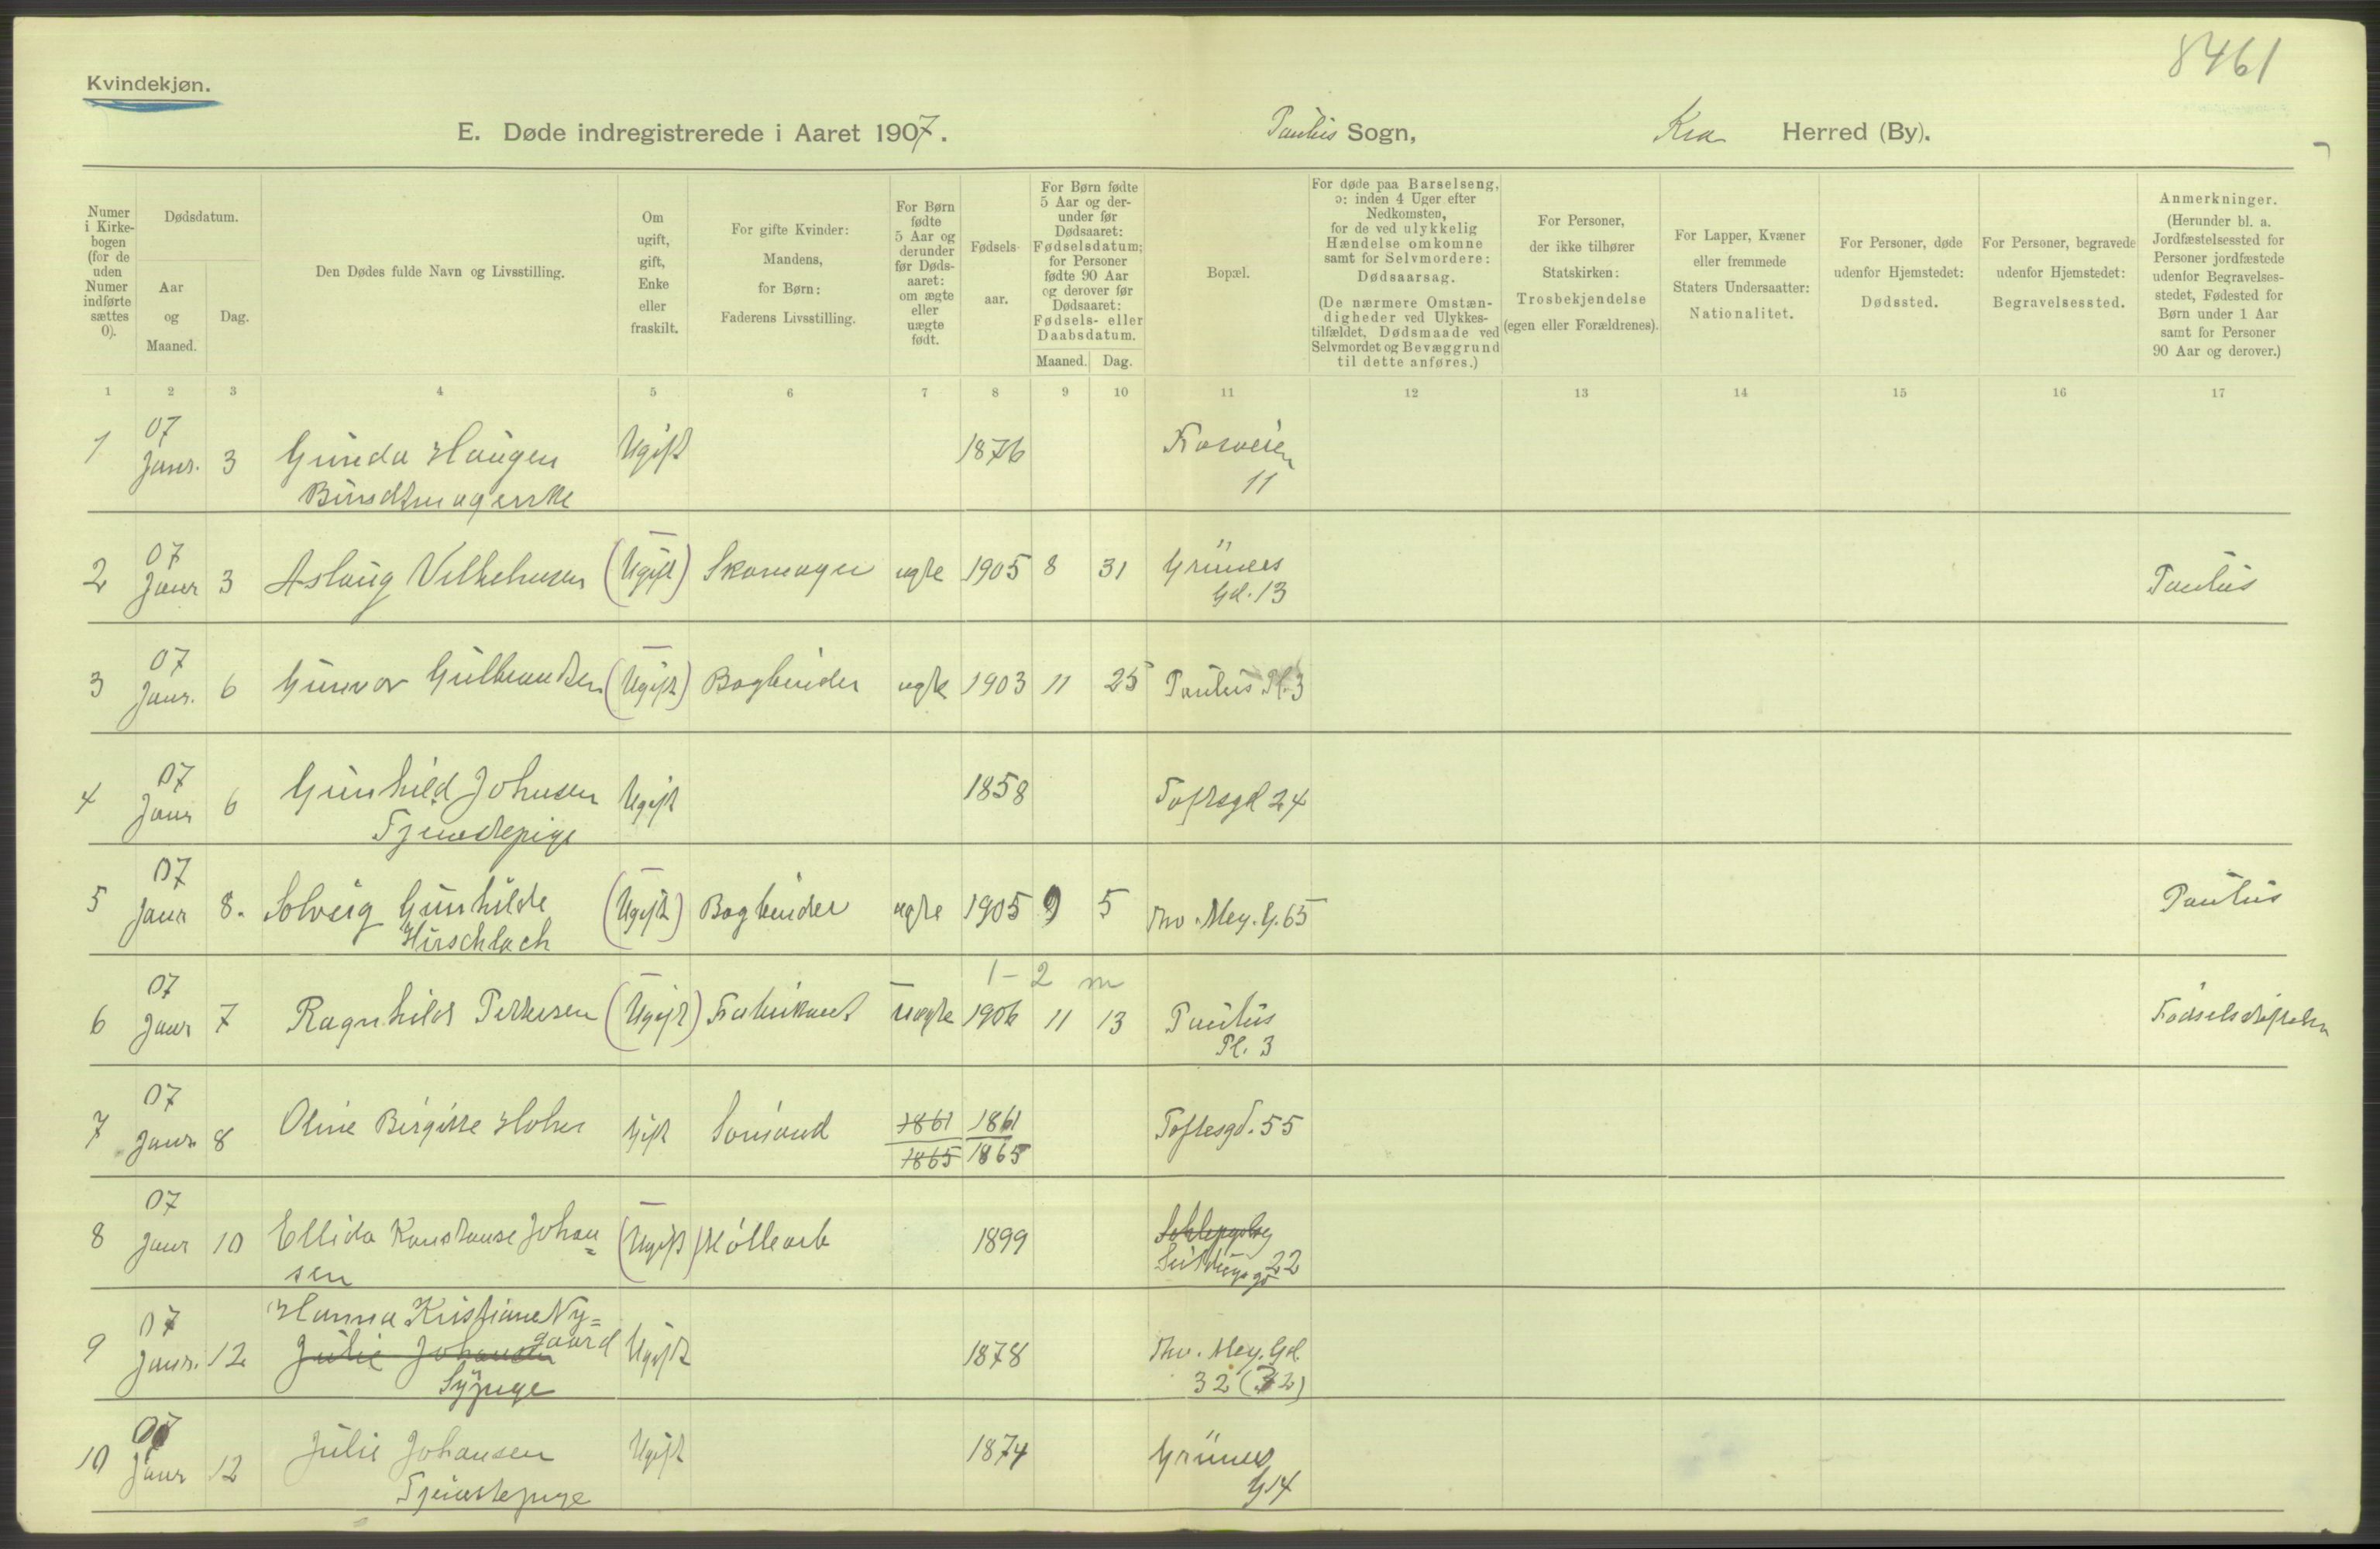 8461
Kvindekjøn.
E. Døde indregistrerede i Aaret 1907. Paulus Sogn, Kra Herred (By).
Numer i Kirke-bogen (for de uden Numer indførte sættes 0).
Dødsdatum.
Aar og Maaned.
Dag.
Den Dødes fulde Navn og Livsstilling.
Om ugift, gift, Enke eller fraskilt.
For gifte Kvinder: Mandens, for Børn: Faderens Livsstilling.
For Børn fødte 5 Aar og derunder før Døds-aaret: om ægte eller uægte født.
Fødsels-aar.
For Børn fødte 5 Aar og der-under før Dødsaaret: Fødselsdatum; for Personer fødte 90 Aar og derover før Dødsaaret: Fødsels- eller Daabsdatum.
Maaned. Dag.
Bopæl.
For døde paa Barselseng, ɔ: inden 4 Uger efter Nedkomsten, for de ved ulykkelig Hændelse omkomne samt for Selvmordere: Dødsaarsag.
(De nærmere Omstæn-digheder ved Ulykkes-tilfældet, Dødsmaade ved Selvmordet og Bevæggrund til dette anføres.)
For Personer, der ikke tilhører Statskirken: Trosbekjendelse (egen eller Forældrenes).
For Lapper, Kvæner eller fremmede Staters Undersaatter: Nationalitet.
For Personer, døde udenfor Hjemstedet: Dødssted.
For Personer, begravede udenfor Hjemstedet: Begravelsessted.
Anmerkninger.
(Herunder bl. a. Jordfæstelsessted for Personer jordfæstede udenfor Begravelses-stedet, Fødested for Børn under 1 Aar samt for Personer 90 Aar og derover.)
1 2 3 4 5 6 7 8 9 10 11 12 13 14 15 16 17
1 07 Janr. 3 Gunda Haugen Ugift 1876
Bundtmagerske 11
2 07 Janr 3 Aslaug Vilhelmsen (Ugift) Skomager ægte 1905 8 31 Grüners Paulus
Gd. 13
3 07 Janr. 6 Gunvor Gulbrandsen (Ugift) Bogbinder ægte 1903 11 25 Paulus Pl. 3
4 07 Janr 6 Gunhild Johnsen Ugift 1858 Toftesgd 24
Tjenestepige
5 07 Janr 8. Solveig Gunhilde (Ugift) Bogbinder ægte 1905 9 5 Thv. Mey. G. 65 Paulus
Hirschlach
1 - 2 m
6 07 Janr 7 Ragnhild Pettersen (Ugift) Fabrikant uægte 1906 11 13 Paulus Fødselsstiftelsen
Pl. 3
7 07 Janr. 8 Oline Birgitte Holm Gift 1861 1861 Toftesgd. 55
1865 1865
8 07 Janr 10 Ellida Konstanse Johan= (Ugift) Møllearb 1899
sen 22
Hanna Kristiane Ny=
9 07 Janr. 12 gaard Julie Johansen Ugift 1878 Thv. Mey. Gd.
Sypige 32 (32)
10 07 Janr 12 Julie Johansen Ugift 1874 Grüners
Tjenestepige G 14